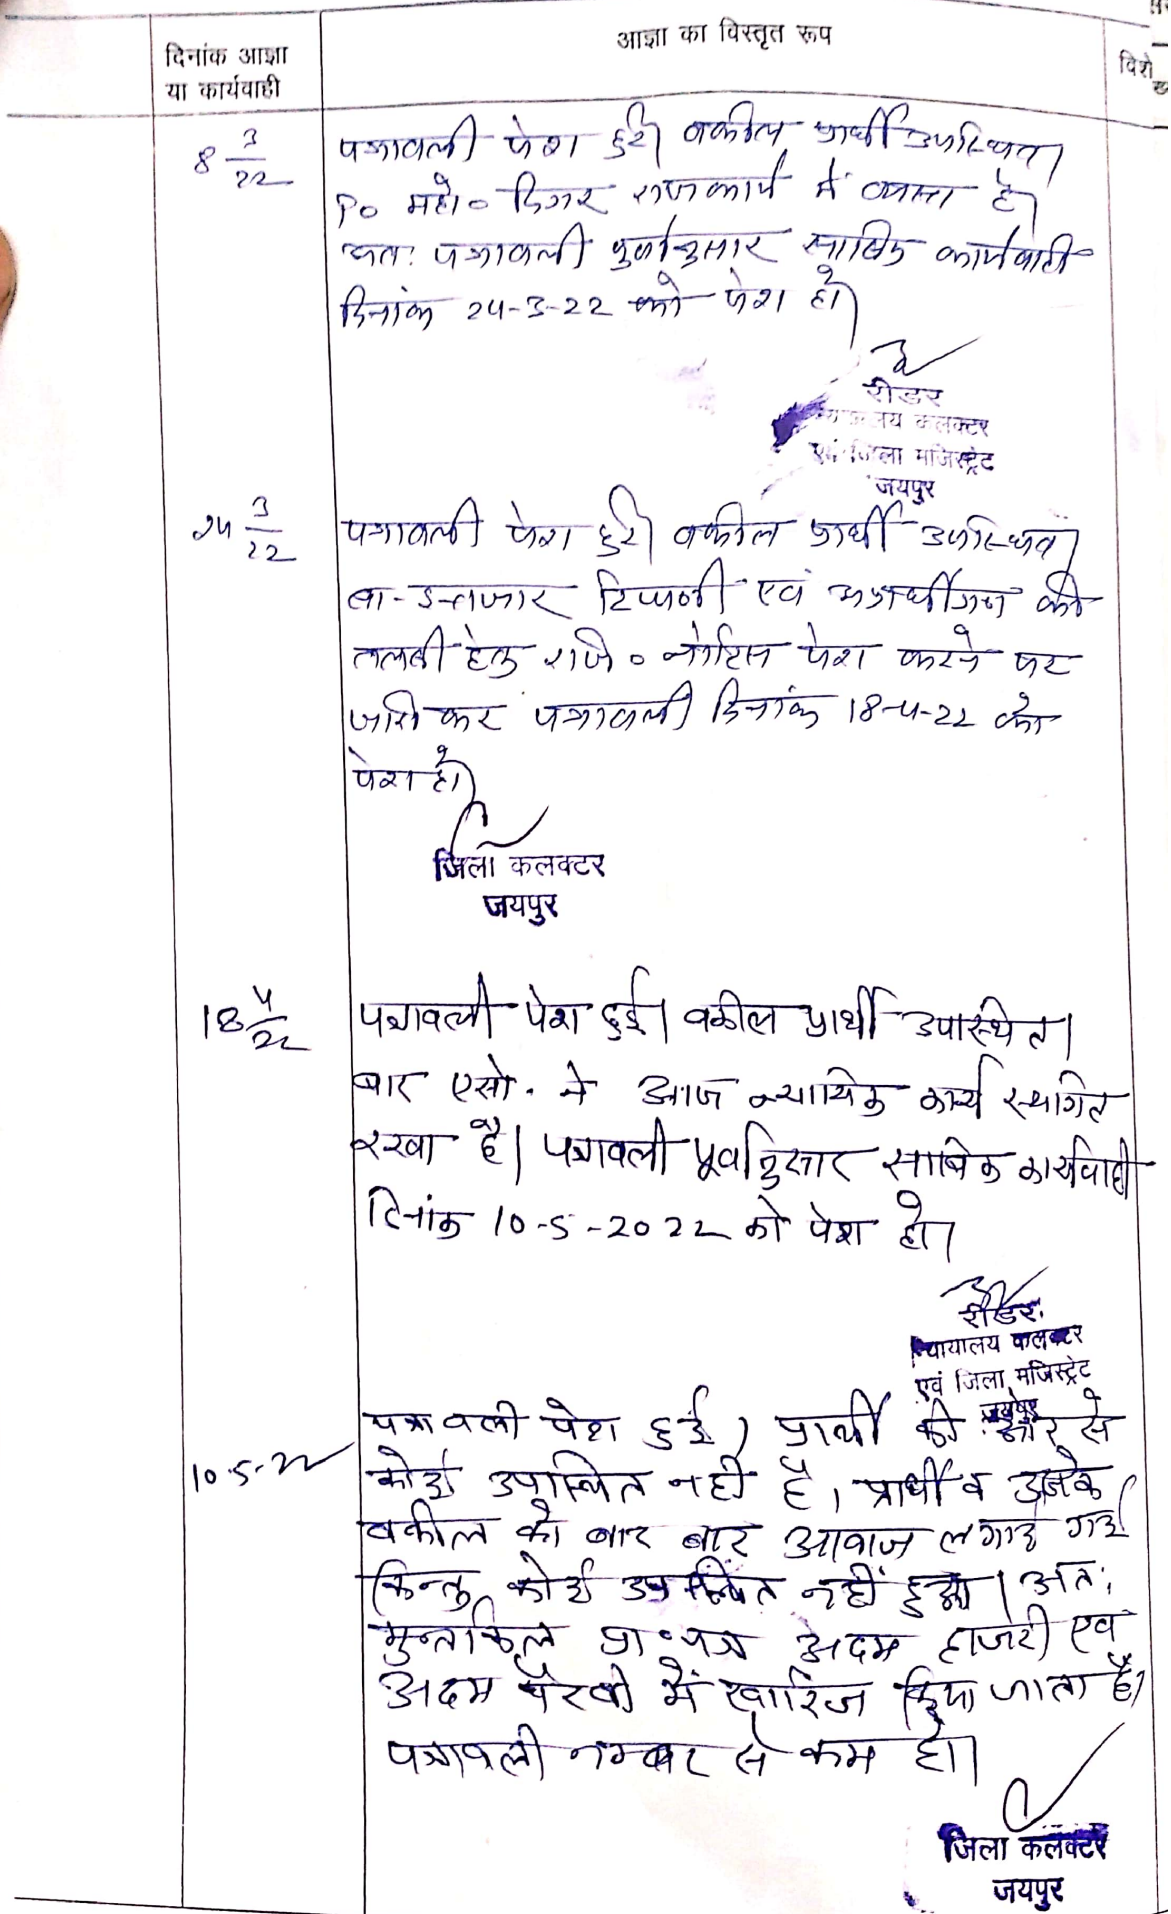 दिनांक आज्ञा
या कार्यवाही
आज्ञा का विस्तृत रूप
विशे
8 3/22
पत्रावली पेश हुई। वकील प्रार्थी उपस्थित।
P० महो० दिगर राजकार्य में व्यस्त है।
अतः पत्रावली पुर्वानुसार साबिक कार्यवाही
दिनांक 24-3-22 को पेश हो।
रीडर
लय कलक्टर
एवं जिला मजिस्ट्रेट
जयपुर
24 3/22
पत्रावली पेश हुई। वकील प्रार्थी उपस्थित।
बा-इन्तजार टिप्पणी एवं अप्रार्थीगण की
तलबी हेतु रजि० नोटिस पेश करने पर
जारी कर पत्रावली दिनांक 18-4-22 को
पेश हो।
जिला कलक्टर
जयपुर
18 4/22
पत्रावली पेश हुई। वकील प्रार्थी उपस्थित।
बार एसो. ने आज न्यायिक कार्य स्थगित
रखा है। पत्रावली पूर्वानुसार साबिक कार्यवाही
दिनांक 10-5-2022 को पेश हो।
रीडर
न्यायालय कलक्टर
एवं जिला मजिस्ट्रेट
जयपुर
10.5-22
पत्रावली पेश हुई। प्रार्थी की ओर से
कोई उपस्थित नहीं है। प्रार्थी व उनके
वकील को बार बार आवाज लगाई गई
किन्तु कोई उपस्थित नहीं हुआ। अतः
मुन्तकिल प्रा०पत्र अदम हाजरी एवं
अदम पैरवी में खारिज किया जाता है।
पत्रावली नम्बर से कम हो।
जिला कलक्टर
जयपुर